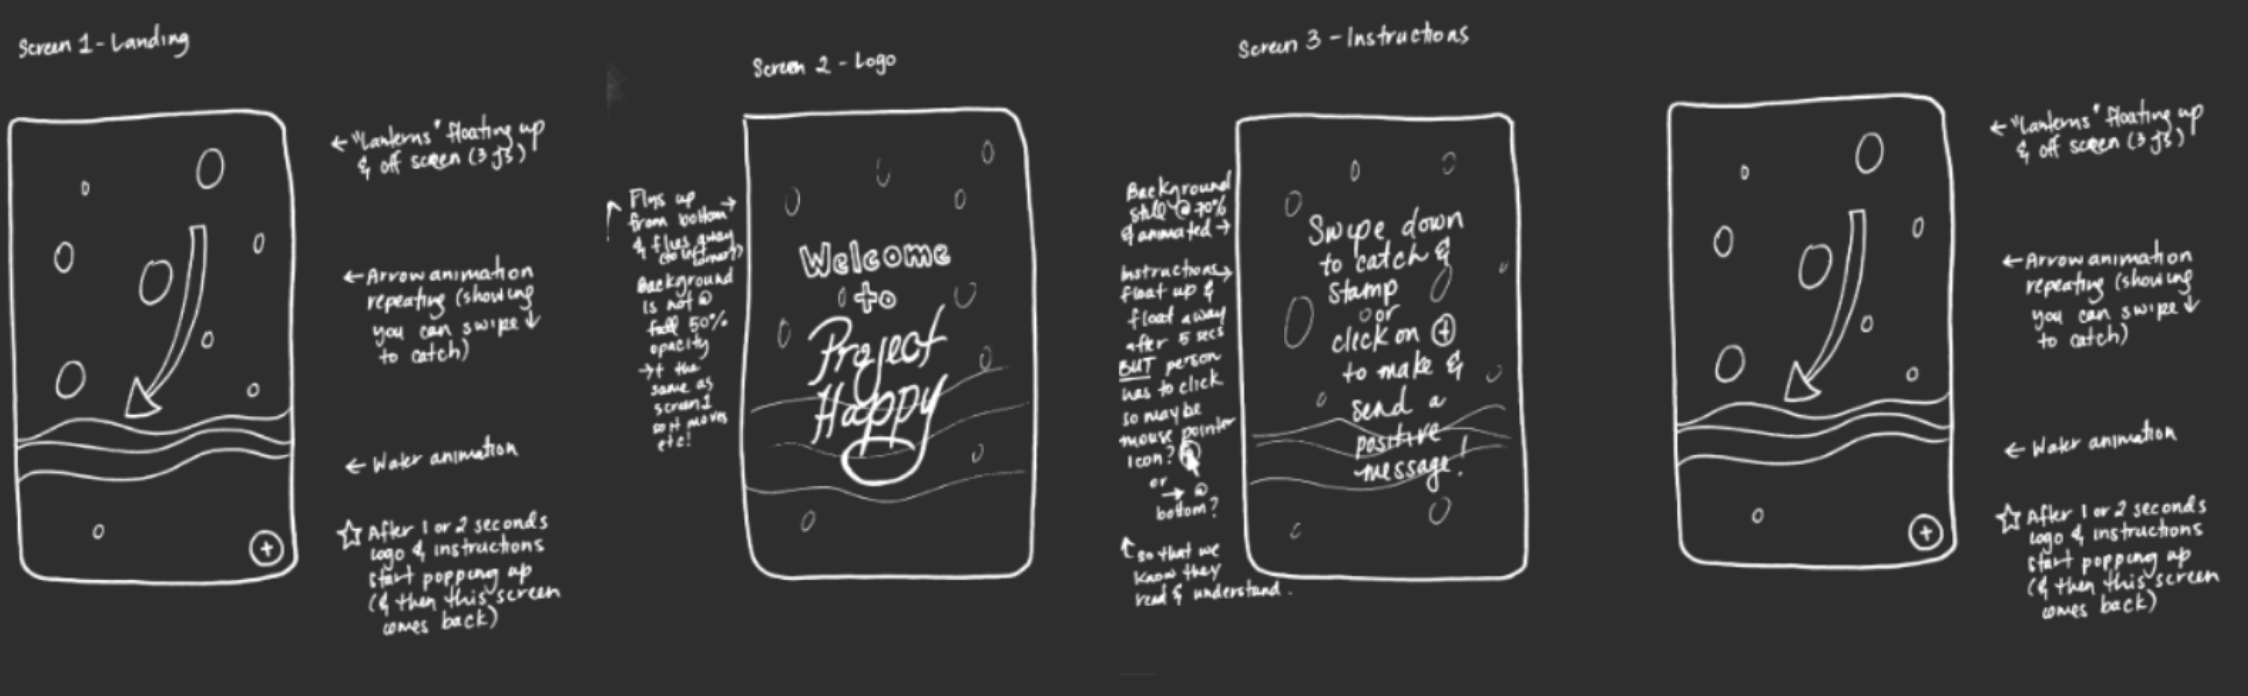 Screen 1 - Landing
← "Lanterns" floating up
& off screen (3 js)
← Arrow animation
repeating (showing
you can swipe ↓
to catch)
← Water animation
☆ After 1 or 2 seconds
logo & instructions
start popping up
(& then this screen
comes back)
+
Screen 2 - Logo
↑ Flys up
from bottom →
& flys away
(to left
corner?)
Background
is not @
full 50%
opacity
→ + the
same as
screen 1
so it moves
etc!
Welcome
to
Project
Happy
Screen 3 - Instructions
Background
still @ 70%
& animated →
Instructions →
float up &
float away
after 5 secs
BUT person
has to click
so maybe
mouse pointer
icon?
or
→ @
bottom?
↑ so that we
know they
read & understand.
Swipe down
to catch &
stamp
or
click on +
to make &
send a
positive
message!
← "Lanterns" floating up
& off screen (3 js)
← Arrow animation
repeating (showing
you can swipe ↓
to catch)
← Water animation
☆ After 1 or 2 seconds
logo & instructions
start popping up
(& then this screen
comes back)
+